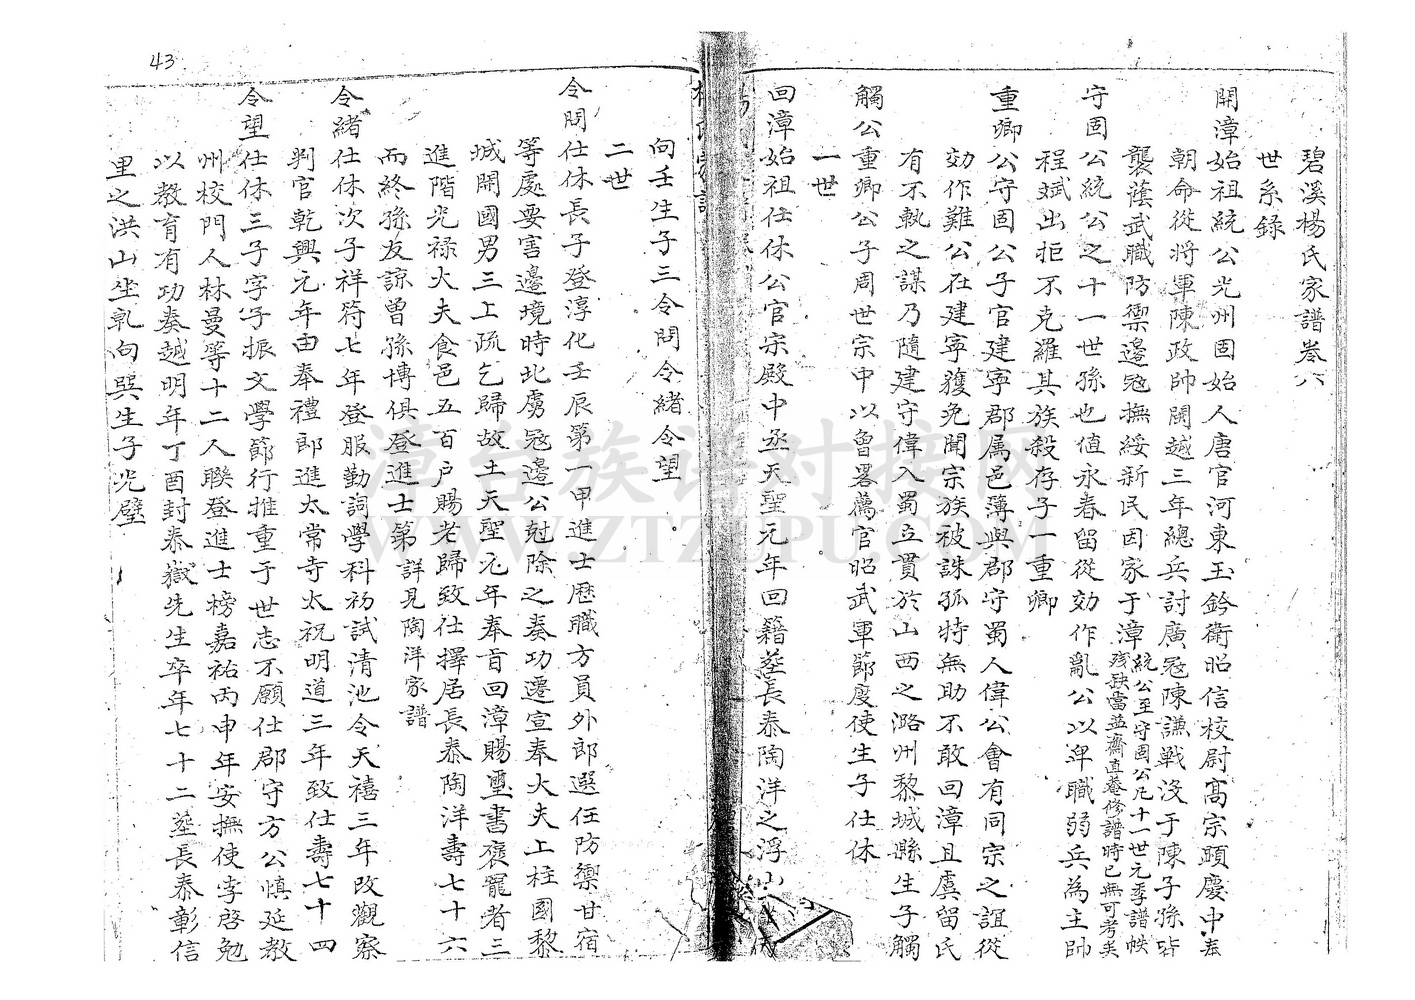 碧溪楊氏家譜卷八
世系錄
開漳始祖統公光州固始人唐官河東玉鈐衛昭信校尉髙宗顕慶中奉
朝命從將軍陳政帥閩越三年總兵討廣冦陳謙戦沒于陳子孫
襲蔭武職防禦邊冦撫綏新民因家于漳統公至守固公凡十一世元季譜帙
残缺當並齋直菴修譜時已無可考矣
守固公統公之十一世孫也值永春留從効作亂公以卑職弱兵為主帥
程斌出拒不克羅其族殺存子一重卿
重卿公守固公子官建寧郡属邑薄與郡守蜀人偉公會有同宗之誼從
効作難公在建寧獲免聞宗族被誅孤特無助不敢回漳且虞留氏
有不軌之謀乃隨建守偉入蜀立貫於山西之潞州黎城縣生子觸
觸公重卿公子周世宗中以魯畧薦官昭武軍節度使生子仕休
一世
回漳始祖仕休公官宗殿中丞天聖元年回籍塟長泰陶洋之浮山
向壬生子三令問令緒令望
二世
令問仕休長子登淳化壬辰第一甲進士歷職方員外郎選任防禦甘宿
等處要害邊境時北虜冦邊公尅除之奏功遷宣奉大夫上柱國黎
城開國男三上疏乞歸故土天聖元年奉旨回漳賜璽書褒寵者三
進階光禄大夫食邑五百戶賜老歸致仕擇居長泰陶洋壽七十六
而終孫友諒曽孫博俱登進士第詳見陶洋家譜
令緒仕休次子祥符七年登服勤詞學科初試清池令天禧三年改觀察
判官乾興元年由奉禮郎進太常寺太祝明道三年致仕壽七十四
令望仕休三子字子振文學節行推重于世志不願仕郡守方公慎延教
州校門人林曼等十二人聯登進士榜嘉祐丙申年安撫使李啓勉
以教育有功奏越明年丁酉封泰嶽先生卒年七十二塟長泰彰信
里之洪山坐乹向巽生子光壁
43
漳台族谱对接网
WWW.ZTZUPU.COM